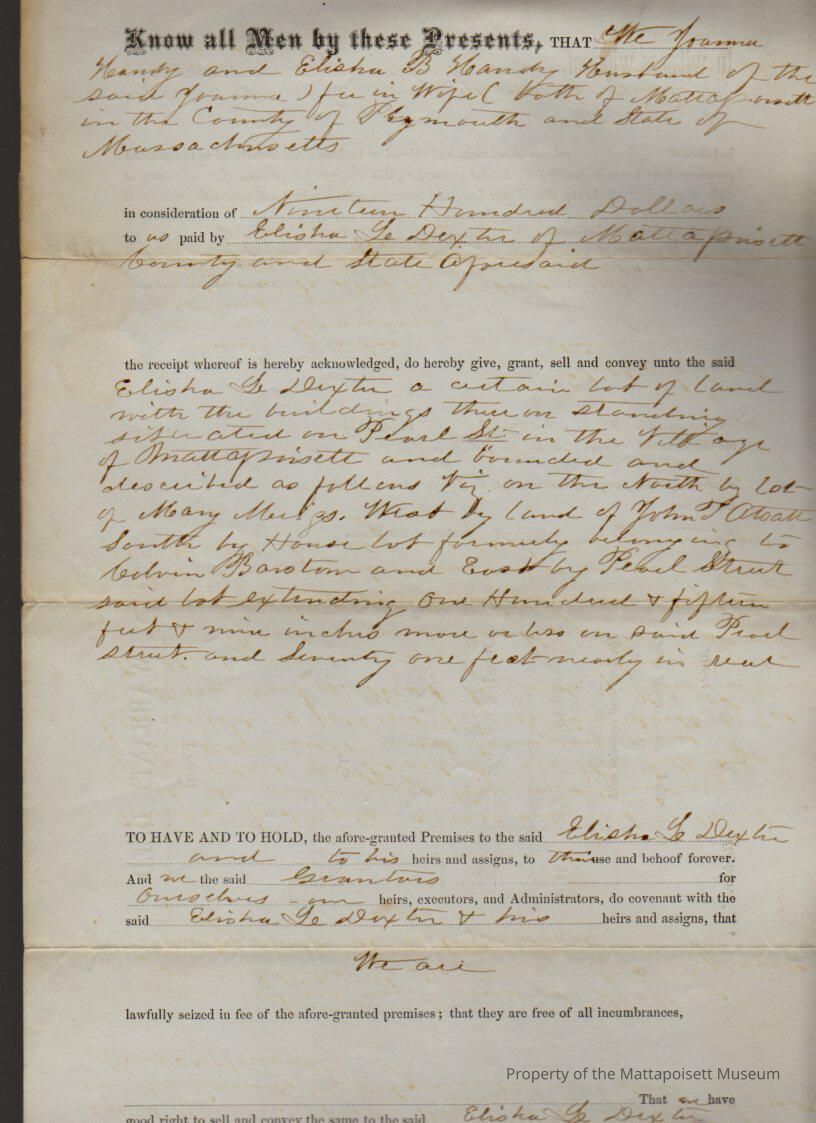 Know all Men by these Presents, THAT We Joanna
Handy and Elisha B Handy Husband of the
said Joanna ) fee in Wife ( both of Mattapoisett
in the County of Plymouth and State of
Massachusetts
in consideration of Nineteen Hundred Dollars
to us paid by Elisha L Dexter of Mattapoisett
County and State aforesaid
the receipt whereof is hereby acknowledged, do hereby give, grant, sell and convey unto the said
Elisha L Dexter a certain lot of land
with the buildings thereon standing
situated on Pearl St in the Village
of Mattapoisett and bounded and
described as follows Viz on the North by lot
of Mary Meigs. West by land of John T Atsatt
South by House lot formerly belonging to
Calvin Barstow and East by Pearl Street
said lot extending One Hundred & fifteen
feet & nine inches more or less on said Pearl
street. and Seventy one feet nearly in rear
TO HAVE AND TO HOLD, the afore-granted Premises to the said Elisha L Dexter
and to his heirs and assigns, to their use and behoof forever.
And we the said Grantors for
Ourselves - our heirs, executors, and Administrators, do covenant with the
said Elisha L Dexter & his heirs and assigns, that
We are
lawfully seized in fee of the afore-granted premises; that they are free of all incumbrances,
Property of the Mattapoisett Museum
That we have
good right to sell and convey the same to the said Elisha L Dexter